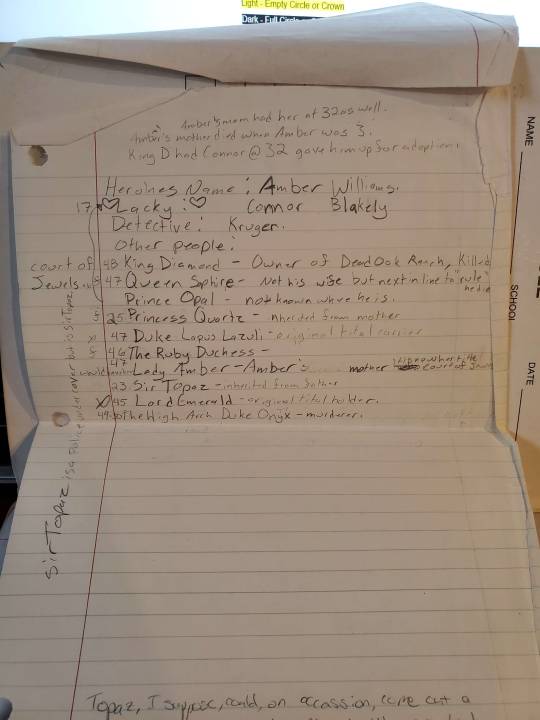 Light - Empty Circle or Crown
Dark - Full Circle
Amber's mom had her at 32 as well.
Amber's mother died when Amber was 3.
King D had Connor @ 32 gave him up for adoption.
Heroines Name: Amber Williams.
17 Lacky: Connor Blakely
Detective: Kruger.
Other people:
court of Jewels
48 King Diamond - Owner of Dead Oak Ranch, Killed
47 Queen Saphire - Not his wife but next in line to "rule"
he die
Prince Opal - not known where he is.
25 Princess Quartz - inherited from mother
47 Duke Lapus Lazuli - original tital carrier
46 The Ruby Duchess -
47 Lady Amber - Amber's mother
23 Sir Topaz - inherited from father
X 45 Lord Emerald - original tital holder.
49 The High Arch Duke Onyx - murderer.
Sir Topaz is a Police under cover but is Sir Topaz
Topaz, I suppose, could, on accassion, come out a
NAME
SCHOOL
DATE